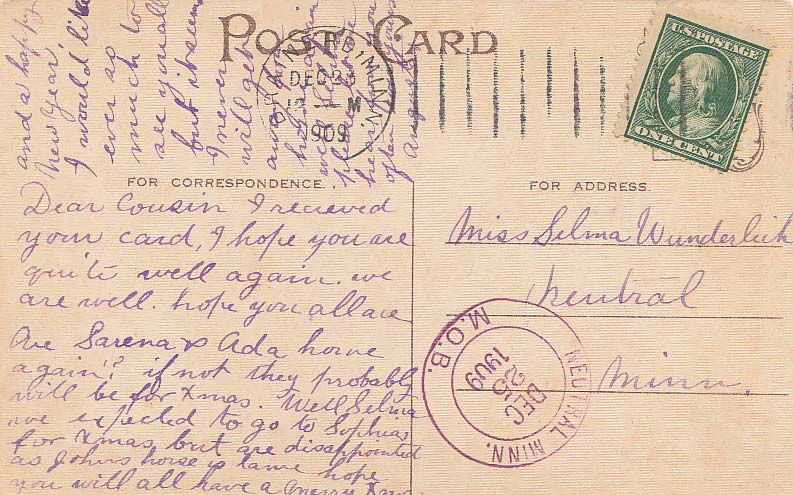 POST CARD
BRAINERD, MINN.
DEC 23
12 — M
1909
U.S. POSTAGE
ONE CENT
FOR CORRESPONDENCE.
Dear Cousin I recieved
your card, I hope you are
quite well again. we
are well. hope you all are
Are Sarena & Ada home
again? if not they probably
will be for Xmas. Well Selma
we expected to go to Sophias
for Xmas but are disappointed
as Johns horse is lame hope
you will all have a merry Xmas
and a happy
New Year.
I would like
ever so
much to
see you all
but it seems
I never
will get
away
FOR ADDRESS.
Miss Selma Wunderlich
Neutral
Minn.
NEUTRAL MINN.
DEC
25
1909
M.O.B.